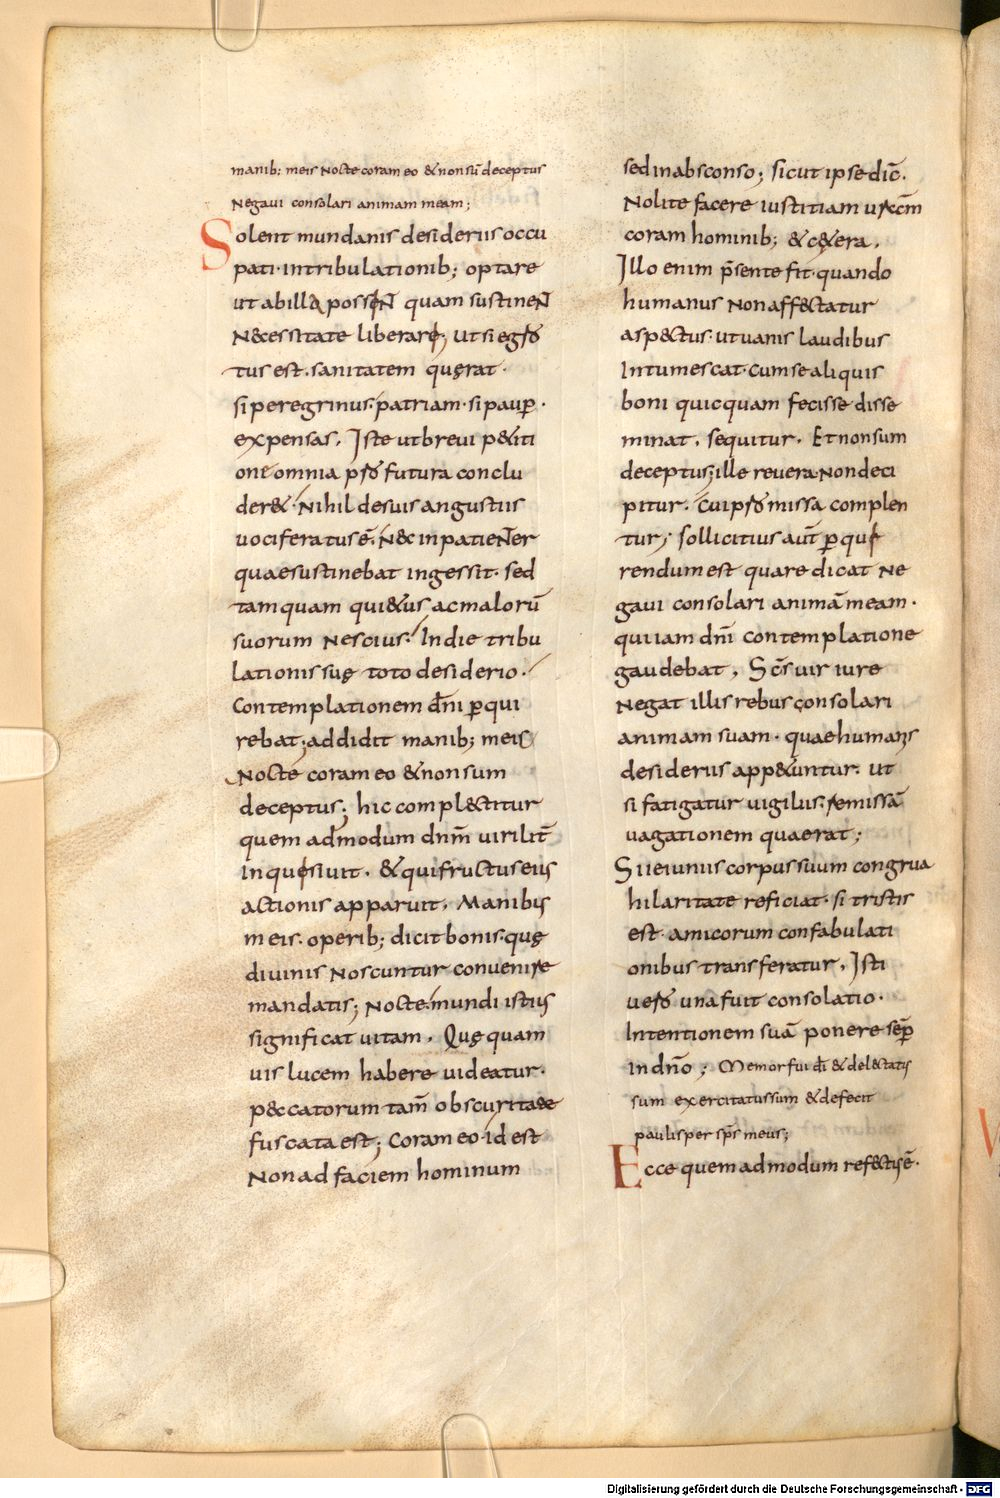 manib; meis Nocte coram eo & non sū deceptus
Negaui consolari animam meam;
Solent mundanis desideriis occu
pati· intribulationib; optare
ut ab illa possent quam sustinent
N&cessitate liberari; ut si egro
tus est. sanitatem quęrat·
si peregrinus· patriam· si paup̄·
expensas. Iste ut breui p&iti
one omnia ps̄ futura conclu
der&· Nihil de suis angustiis
uociferatus ē. N&c inpatienter
quae sustinebat ingessit· sed
tamquam qui&us ac malorū
suorum Nescius· In die tribu
lationis suę toto desiderio.
Contemplationem dn̄i p̄qui
rebat; addidit manib; meis
Nocte coram eo & non sum
deceptus; hic compl&ctitur
quem admodum dnm̄ virilit̄
Inquęsiuit. & qui fructus eius
actionis apparuit. Manibus
meis. operib; dicit bonis· quę
diuinis Noscuntur conuenire
mandatis; Nocte· mundi istius
significat uitam. Quę quam
uis lucem habere uideatur·
p&ccatorum tam̄ obscuritate
fuscata est; Coram eo· id est
Non ad faciem hominum
sed in absconso; sicut ipse dic̄.
Nolite facere iustitiam uram̄
coram hominib; & c&era.
Illo enim p̄sente fit· quando
humanus Non aff&ctatur
asp&ctus· ut uanis laudibus
Intumescat· cum se aliquis
boni quicquam fecisse disse
minat. sequitur. Et non sum
deceptus; ille reuera Non deci
pitur. Cui p̄missa complen
tur; sollicitius aut̄ p̄quę
rendum est quare dicat Ne
gaui consolari animā meam·
qui iam dn̄i contemplatione
gaudebat. Sc̄s uir iure
Negat illis rebus consolari
animam suam· quae humanis
desideriis app&untur. ut
si fatigatur uigiliis· remissā
uagationem quaerat;
Si ieiuniis corpus suum congrua
hilaritate reficiat· si tristis
est· amicorum confabulati
onibus transferatur. Isti
uero una fuit consolatio·
Intentionem suā ponere sep̄
in dn̄o; Memor fui dī & del&ctatus
sum exercitatus sum & defecit
paulisper sp̄s meus;
Ecce quem admodum ref&ctus ē·
Digitalisierung gefördert durch die Deutsche Forschungsgemeinschaft - DFG